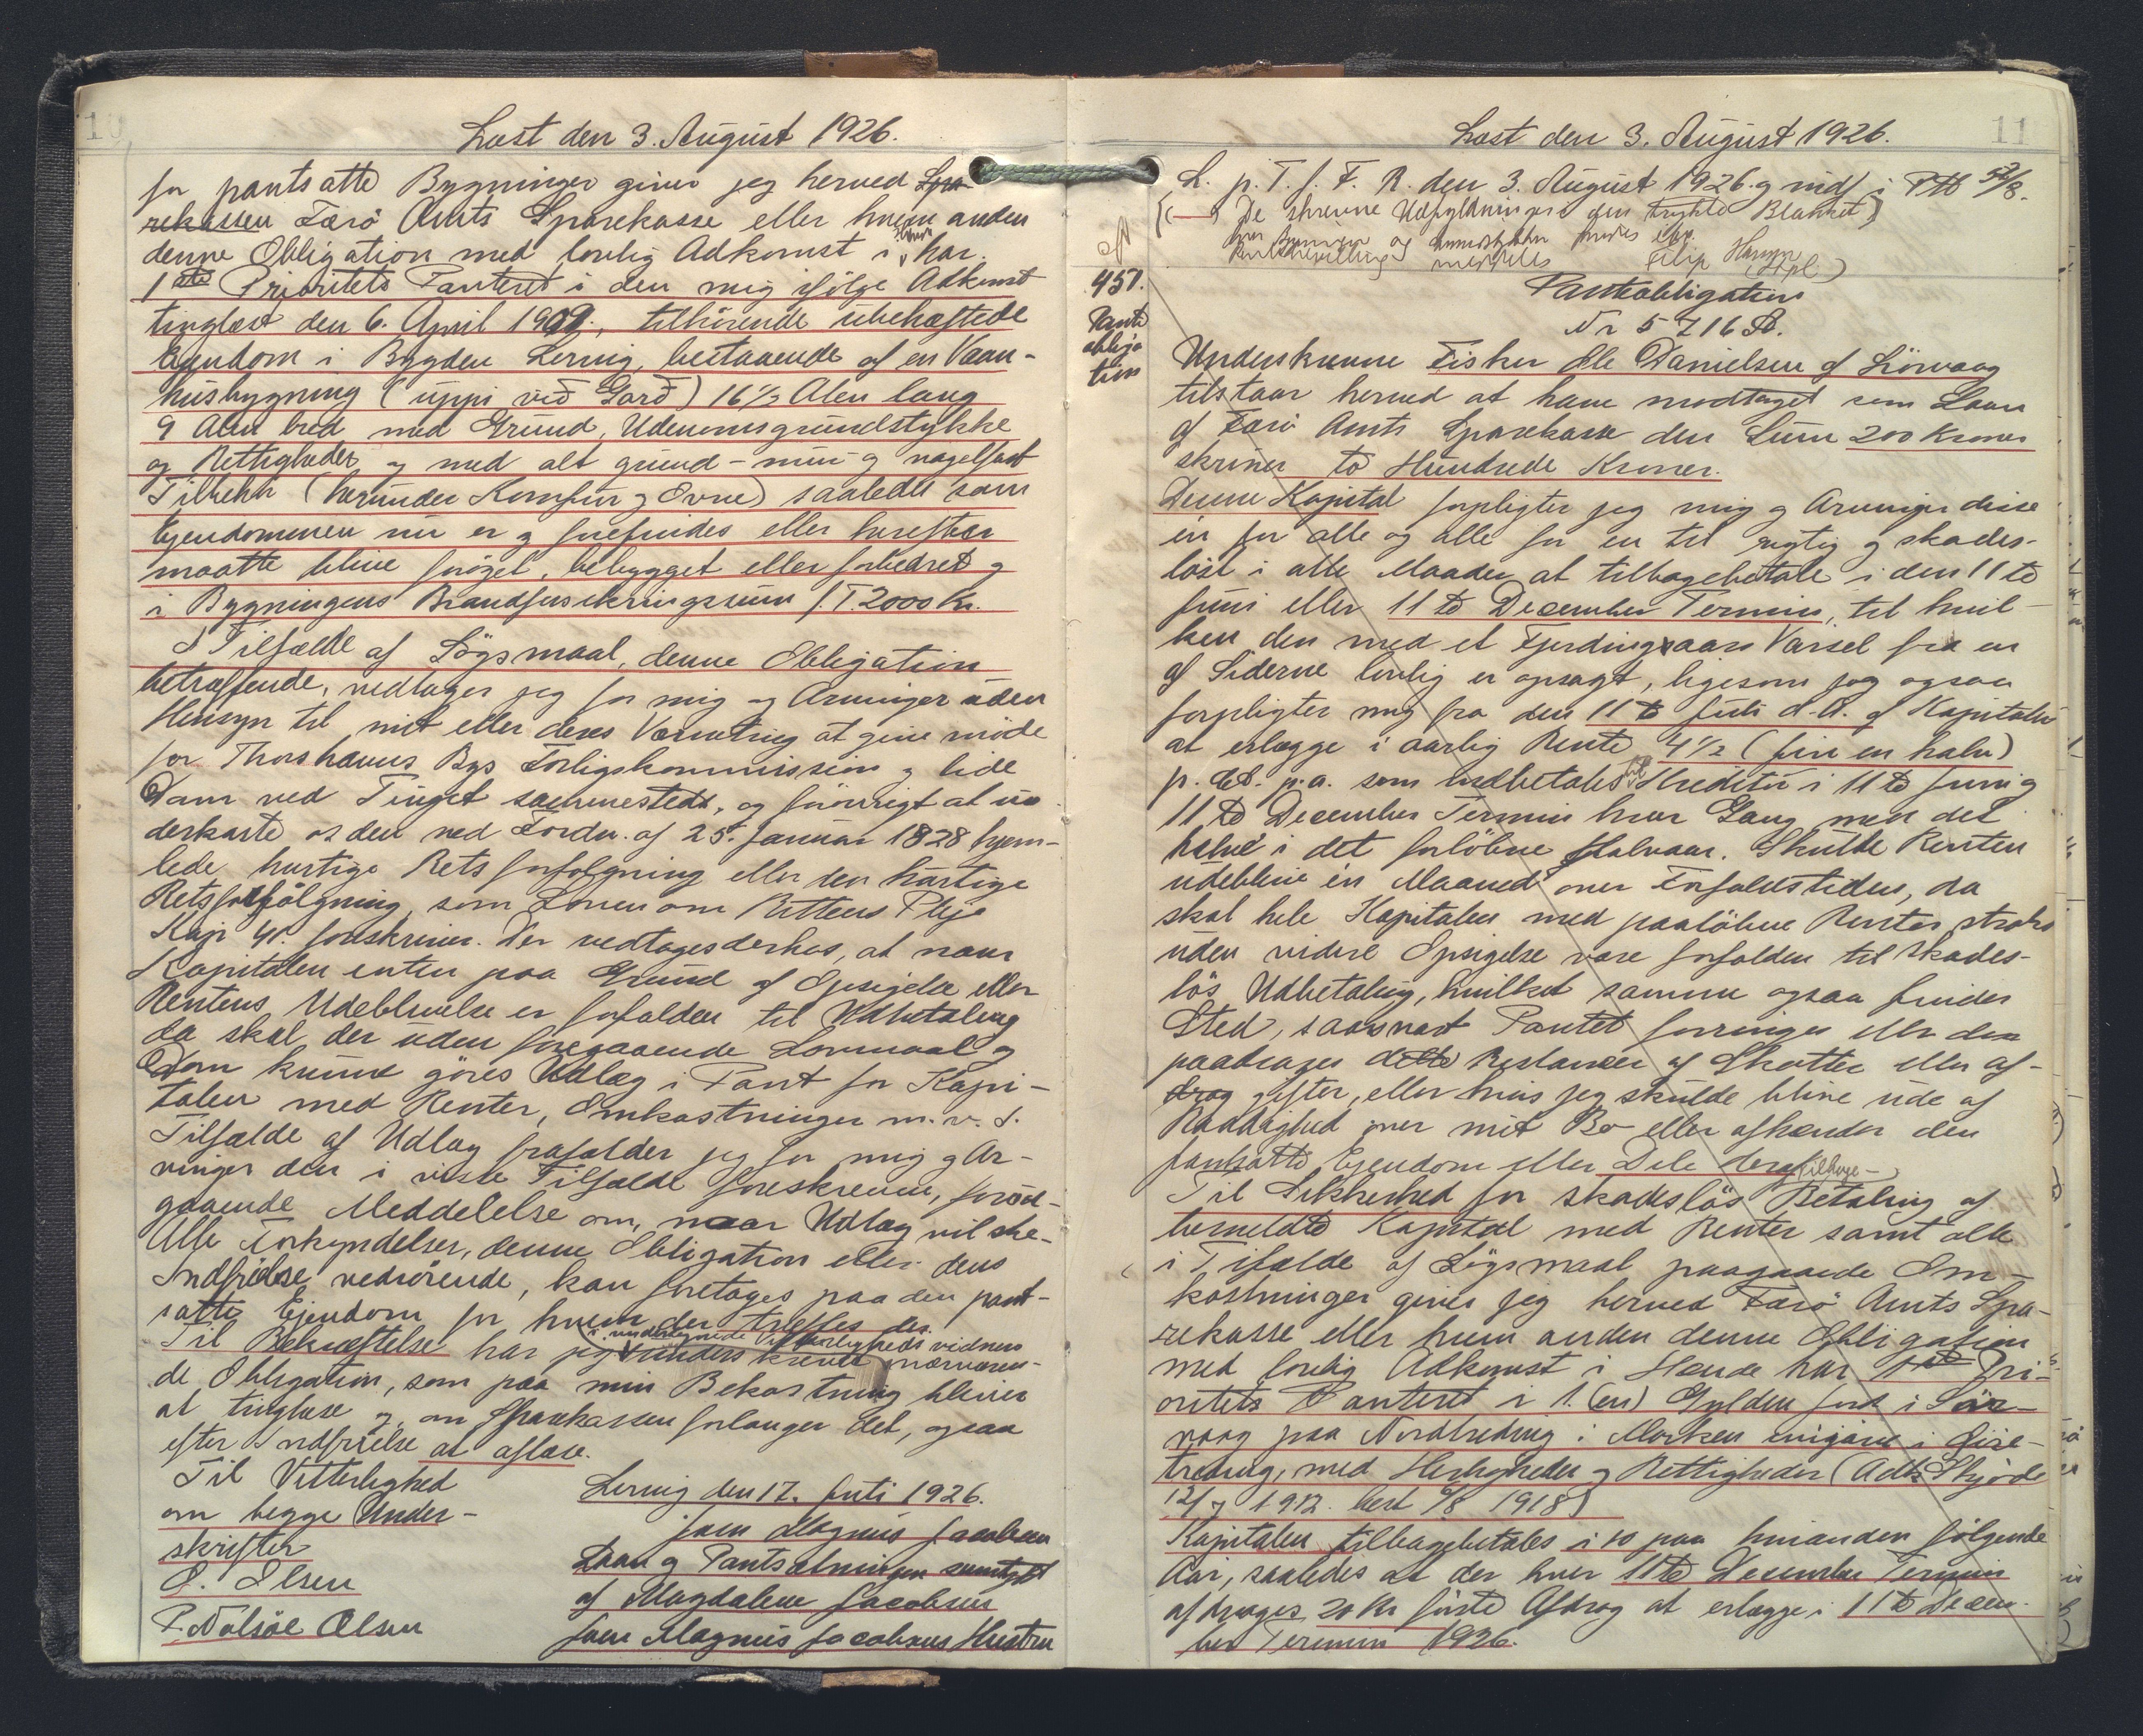 10
Læst den 3. August 1926.
for pantsatte Bygninger giver jeg herved Spa-
rekassen Færö Amts Sparekasse eller hvem anden
denne Obligation med lovlig Adkomst i Hænde har
1ste Prioritets Panteret i den mig ifølge Adkomst
tinglæst den 6. April 1909., tilhörende ubehæftede
Ejendom i Bygden Lervig, bestaaende af en Vaan-
husbygning (uppi við Garð) 16 1/2 Alen lang
9 Alen bred med Grund, Udenomsgrundstykke
og Rettigheder og med alt grund- mur- og nagelfast
Tilbehör (herunder Komfur og Ovne) saaledes som
Ejendommen nu er og forefindes eller herefter
maatte blive forøget, bebygget eller forbedret og
i Bygningens Brandforsikringssum p. T. 2000 Kr.
I Tilfælde af Sögsmaal, denne Obligation
betræffende, vedtager jeg for mig og Arvinger uden
Hensyn til mit eller deres Værneting at give möde
for Thorshavns Bys Forligskommission og lide
Dom ved Tinget sammesteds, og forövrigt at un-
derkaste os den ved Fordn. af 25. Januar 1828 hjem-
lede hurtige Retsforfølgning eller den hurtige
Retsforfölgning, som Loven om Rettens Pleje
Kap 41. foreskriver. Der vedtages derhos, at naar
Kapitalen enten paa Grund af Opsigelse eller
Rentens Udeblivelse er forfalden til Udbetaling
da skal der uden foregaaende Lovmaal og
Dom kunne göres Udlæg i Pant for Kapi-
talen med Renter, Omkostninger m. v. I
Tilfælde af Udlæg frafalder jeg for mig og Ar-
vinger den i visse Tilfælde foreskrevne, forud-
gaaende Meddelelse om, naar Udlæg vil ske.
Alle Forkyndelser, denne Obligation eller dens
Indfrielse vedrörende, kan foretages paa den pant-
satte Ejendom for hvem der træffes der.
i undertegnede Vitterligheds vidners
Til Bekræftelse har jeg underskrevet nærværen-
de Obligation, som paa min Bekostning bliver
at tinglæse og, om Sparekassen forlanger det, ogsaa
efter Indfrielse at aflæse.
Til Vitterlighed
om begge Under-
skrifter
O. Olsen
P. Nolsöe Olsen
Lervig den 17. Juli 1926.
Joen Magnus Jacobsen
Laan og Pantsætningen samtykt
af Magdalene Jacobsen
Joen Magnus Jacobsens Hustru
11
Læst den 3. August 1926.
L. p. T. f. F. R. den 3. August 1926. og indf. i PTB 52/8.
De skrevne Udfyldninger i den trykte Blanket
meddeles
Filip Hansen
451.
Pante
obliga
tion
Panteobligation
Nr 5716 B.
Underskrevne Fisker Ole Danielsen af Sörvaag
tilstaar herved at have modtaget som Laan
af Færö Amts Sparekasse den Sum 200 Kroner
skriver to Hundrede Kroner.
Denne Kapital forpligter jeg mig og Arvinger disse
én for alle og alle for en til rigtig og skades-
löst i alle Maader at tilbagebetale i den 11te
Juni eller 11te December Termin, til hvil-
ken den med et Fjerdingaars Varsel fra en
af Siderne lovlig er opsagt, ligesom jeg ogsaa
forpligter mig fra den 11te Juli d. A. af Kapitalen
at erlægge i aarlig Rente 4 1/2 (fire en halv)
p. Ct. p. a. som indbetales til Kreditor i 11te Juni og
11te December Termin hver Gang med det
halve i det forlöbne Halvaar. Skulde Renten
udeblive én Maaned over Forfaldstiden, da
skal hele Kapitalen med paalöbne Renter straks
uden videre Opsigelse være forfalden til skades-
lös Udbetaling, hvilket samme ogsaa finder
Sted, saasnart Pantet forringes eller der
paadrages dette Restancer af Skatter eller af-
drag gifter, eller hvis jeg skulde blive ude af
Raadighed over mit Bo eller afhænder den
pantsatte Ejendom eller Dele deraf.
tilbage-
Til Sikkerhed for skadeslös Betaling af
bemeldte Kapital med Renter samt alle
i Tilfælde af Sögsmaal paagaaende Om-
kostninger giver jeg herved Færö Amts Spa-
rekasse eller hvem anden denne Obligation
med lovlig Adkomst i Hænde har 1ste Pri-
oritets Panteret i 1. (en) Gylden Jord i Sör-
vaag paa Nordtreding i Marken inigjare i Gize-
treding, med Herligheder og Rettigheder (Adk Skjöde
12/7 1912. læst 6/8 1918)
Kapitalen tilbagebetales i 10 paa hinanden følgende
Aar, saaledes at der hver 11te December Termin
afdrages 20 Kr første Afdrag at erlægge i 11te Decem-
ber Termin 1926.